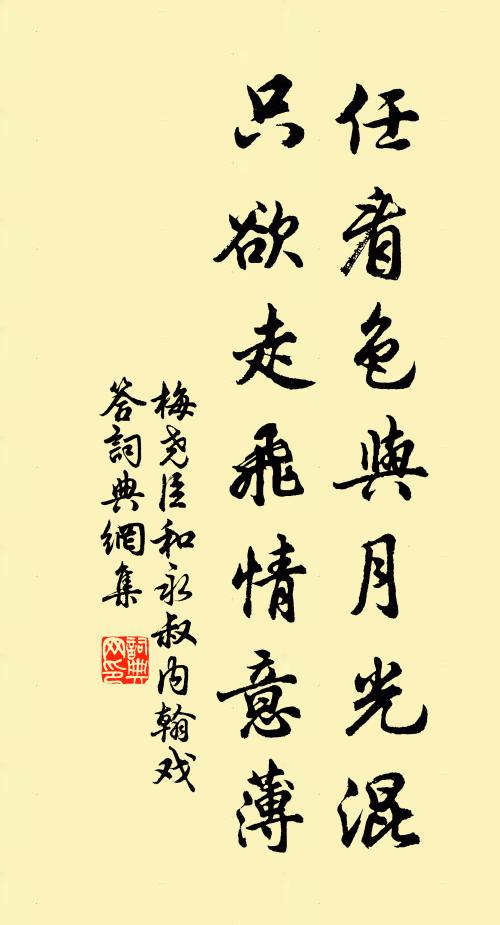 任看色與月光混
只欲走飛情意薄
梅尧臣和永叔内翰戏
答詞典網集
詞典
网印